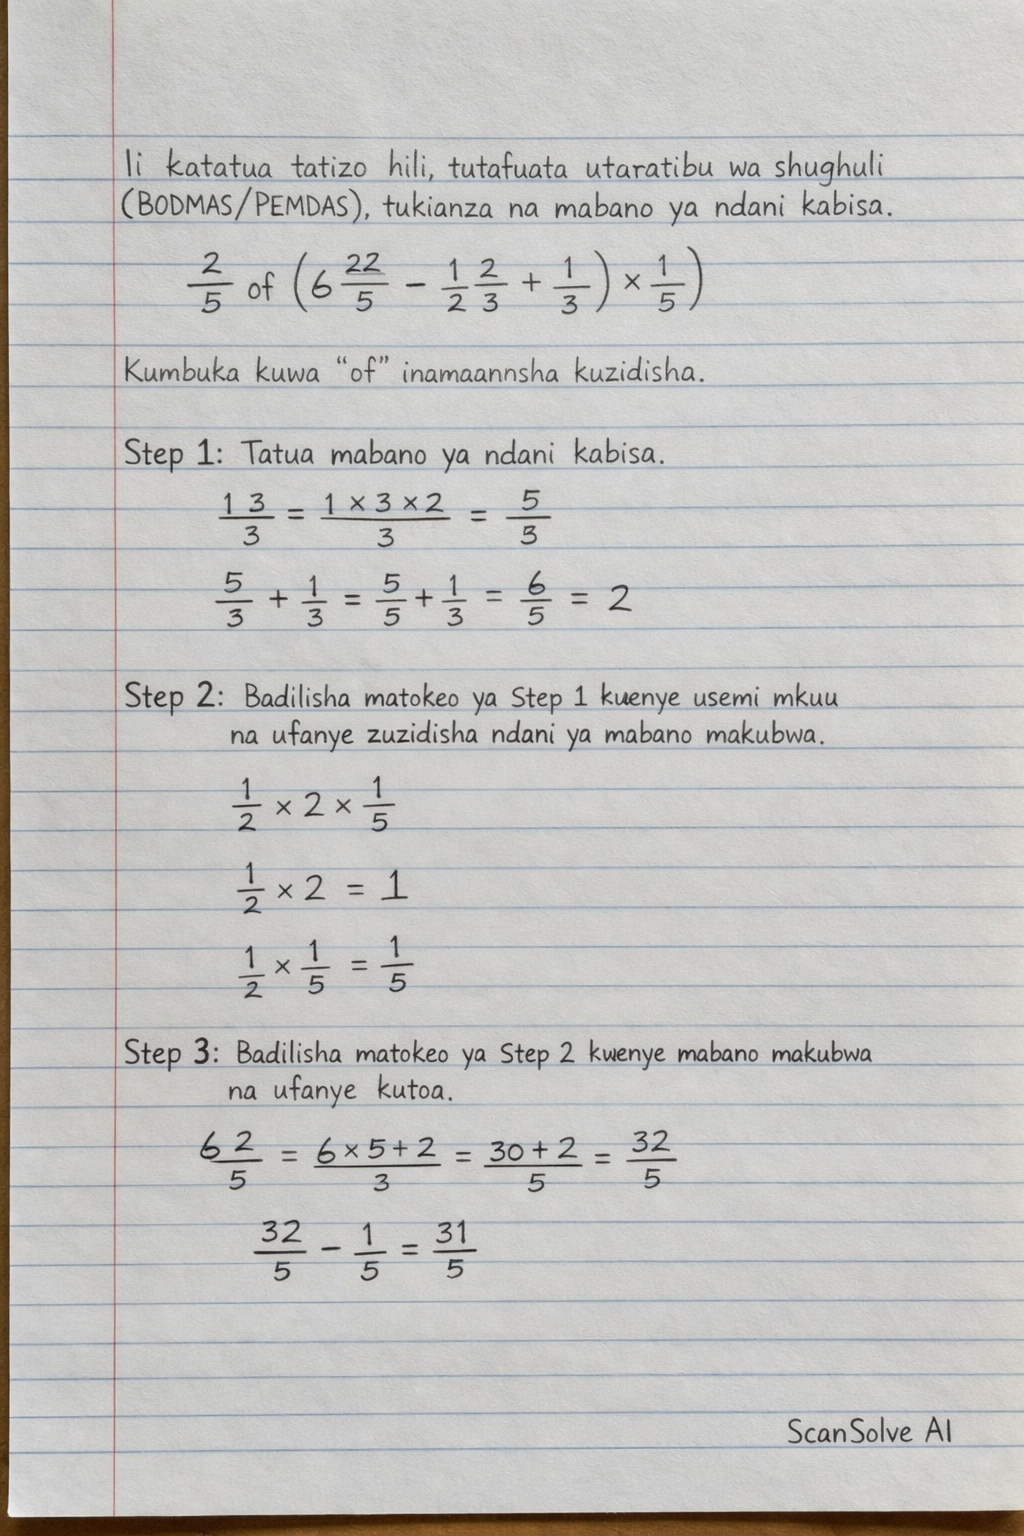 Ii katatua tatizo hili, tutafuata utaratibu wa shughuli
(BODMAS/PEMDAS), tukianza na mabano ya ndani kabisa.
2/5 of (6 22/5 − 1/2 2/3 + 1/3) × 1/5)
Kumbuka kuwa “of” inamaannsha kuzidisha.
Step 1: Tatua mabano ya ndani kabisa.
1 3/3 = 1 × 3 × 2/3 = 5/3
5/3 + 1/3 = 5/5 + 1/3 = 6/5 = 2
Step 2: Badilisha matokeo ya Step 1 kuenye usemi mkuu
na ufanye zuzidisha ndani ya mabano makubwa.
1/2 × 2 × 1/5
1/2 × 2 = 1
1/2 × 1/5 = 1/5
Step 3: Badilisha matokeo ya Step 2 kwenye mabano makubwa
na ufanye kutoa.
6 2/5 = 6 × 5 + 2/3 = 30 + 2/5 = 32/5
32/5 − 1/5 = 31/5
ScanSolve AI